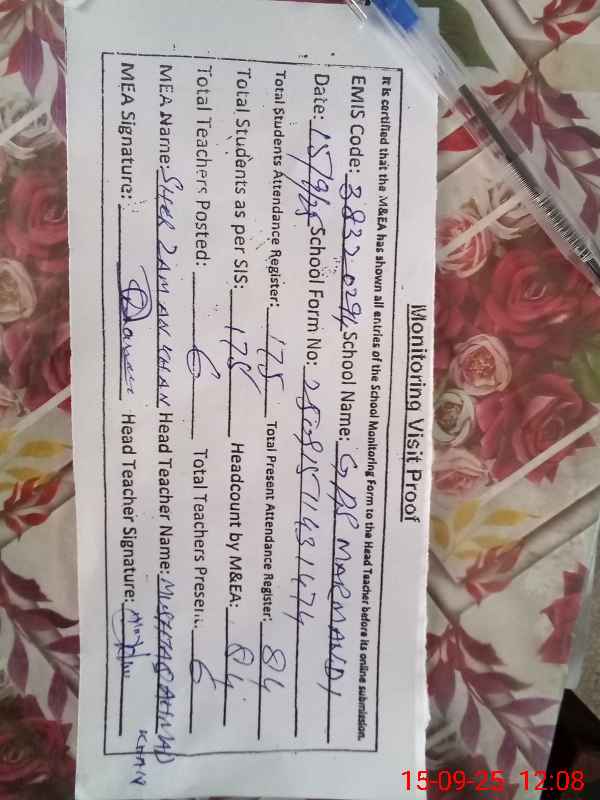 Monitoring Visit Proof
It is certified that the M&EA has shown all entries of the School Monitoring Form to the Head Teacher before its online submission.
EMIS Code: 38320294 School Name: GPS MARMANDI
Date: 15/9/25 School Form No: 25091511431474
Total Students Attendance Register: 175 Total Present Attendance Register: 84
Total Students as per SIS: 175 Headcount by M&EA: 84
Total Teachers Posted: 6 Total Teachers Present: 6
MEA Name: SHER ZAMAN KHAN Head Teacher Name: MUSHTAQ AHMAD KHAN
MEA Signature: Head Teacher Signature:
15-09-25 12:08